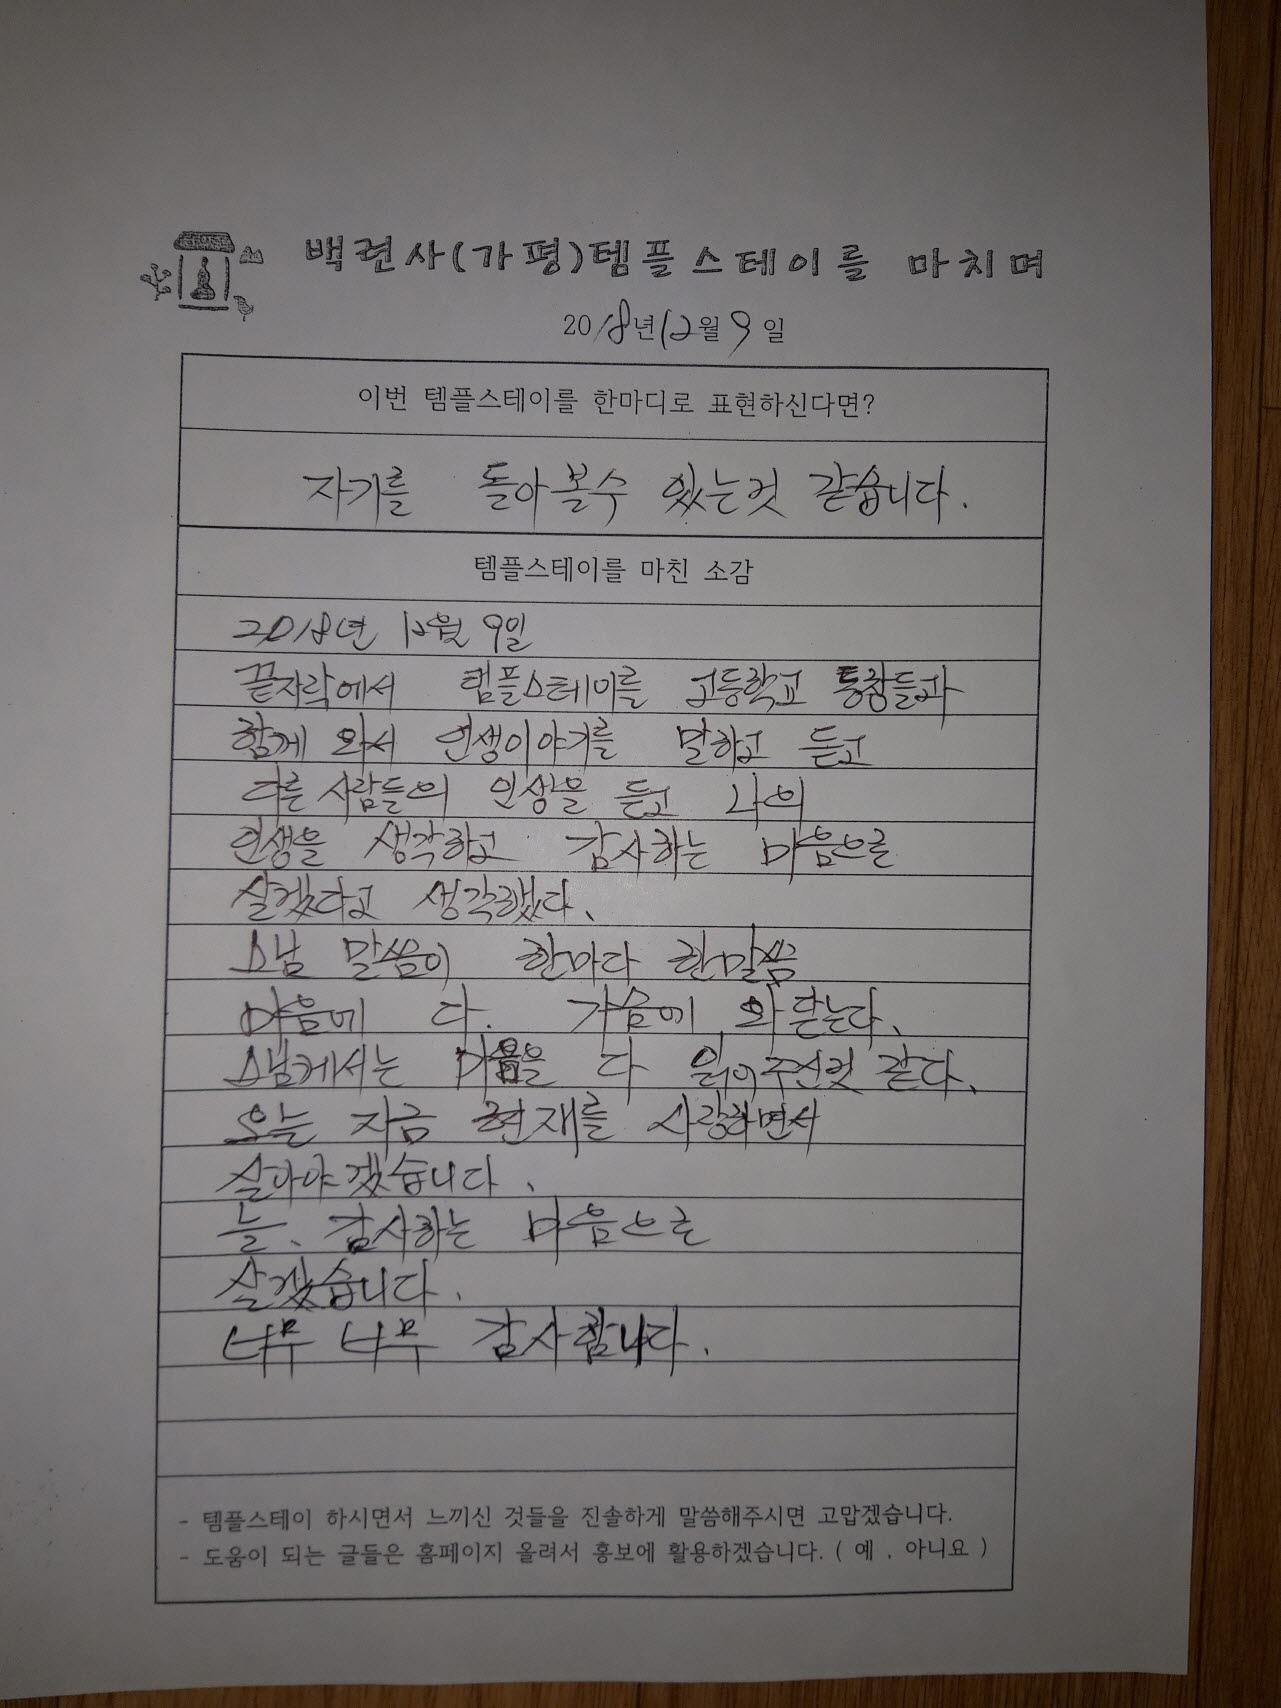 백련사(가평)템플스테이를 마치며
2018년12월9일
이번 템플스테이를 한마디로 표현하신다면?
자기를 돌아볼수 있는것 같습니다.
템플스테이를 마친 소감
2018년 12월 9일
끝자락에서 템플스테이를 고등학교 동창들과
함께 와서 인생이야기를 말하고 듣고
다른 사람들의 인생을 듣고 나의
인생을 생각하고 감사하는 마음으로
살겠다고 생각했다.
스님 말씀이 한마다 한말씀
마음에 다. 가슴에 와 닫는다.
스님께서는 마음을 다 읽어주신것 같다.
오늘 지금 현재를 사랑하면서
살아야겠습니다.
늘. 감사하는 마음으로
살겠습니다.
너무 너무 감사합니다.
- 템플스테이 하시면서 느끼신 것들을 진솔하게 말씀해주시면 고맙겠습니다.
- 도움이 되는 글들은 홈페이지 올려서 홍보에 활용하겠습니다. ( 예 . 아니요 )